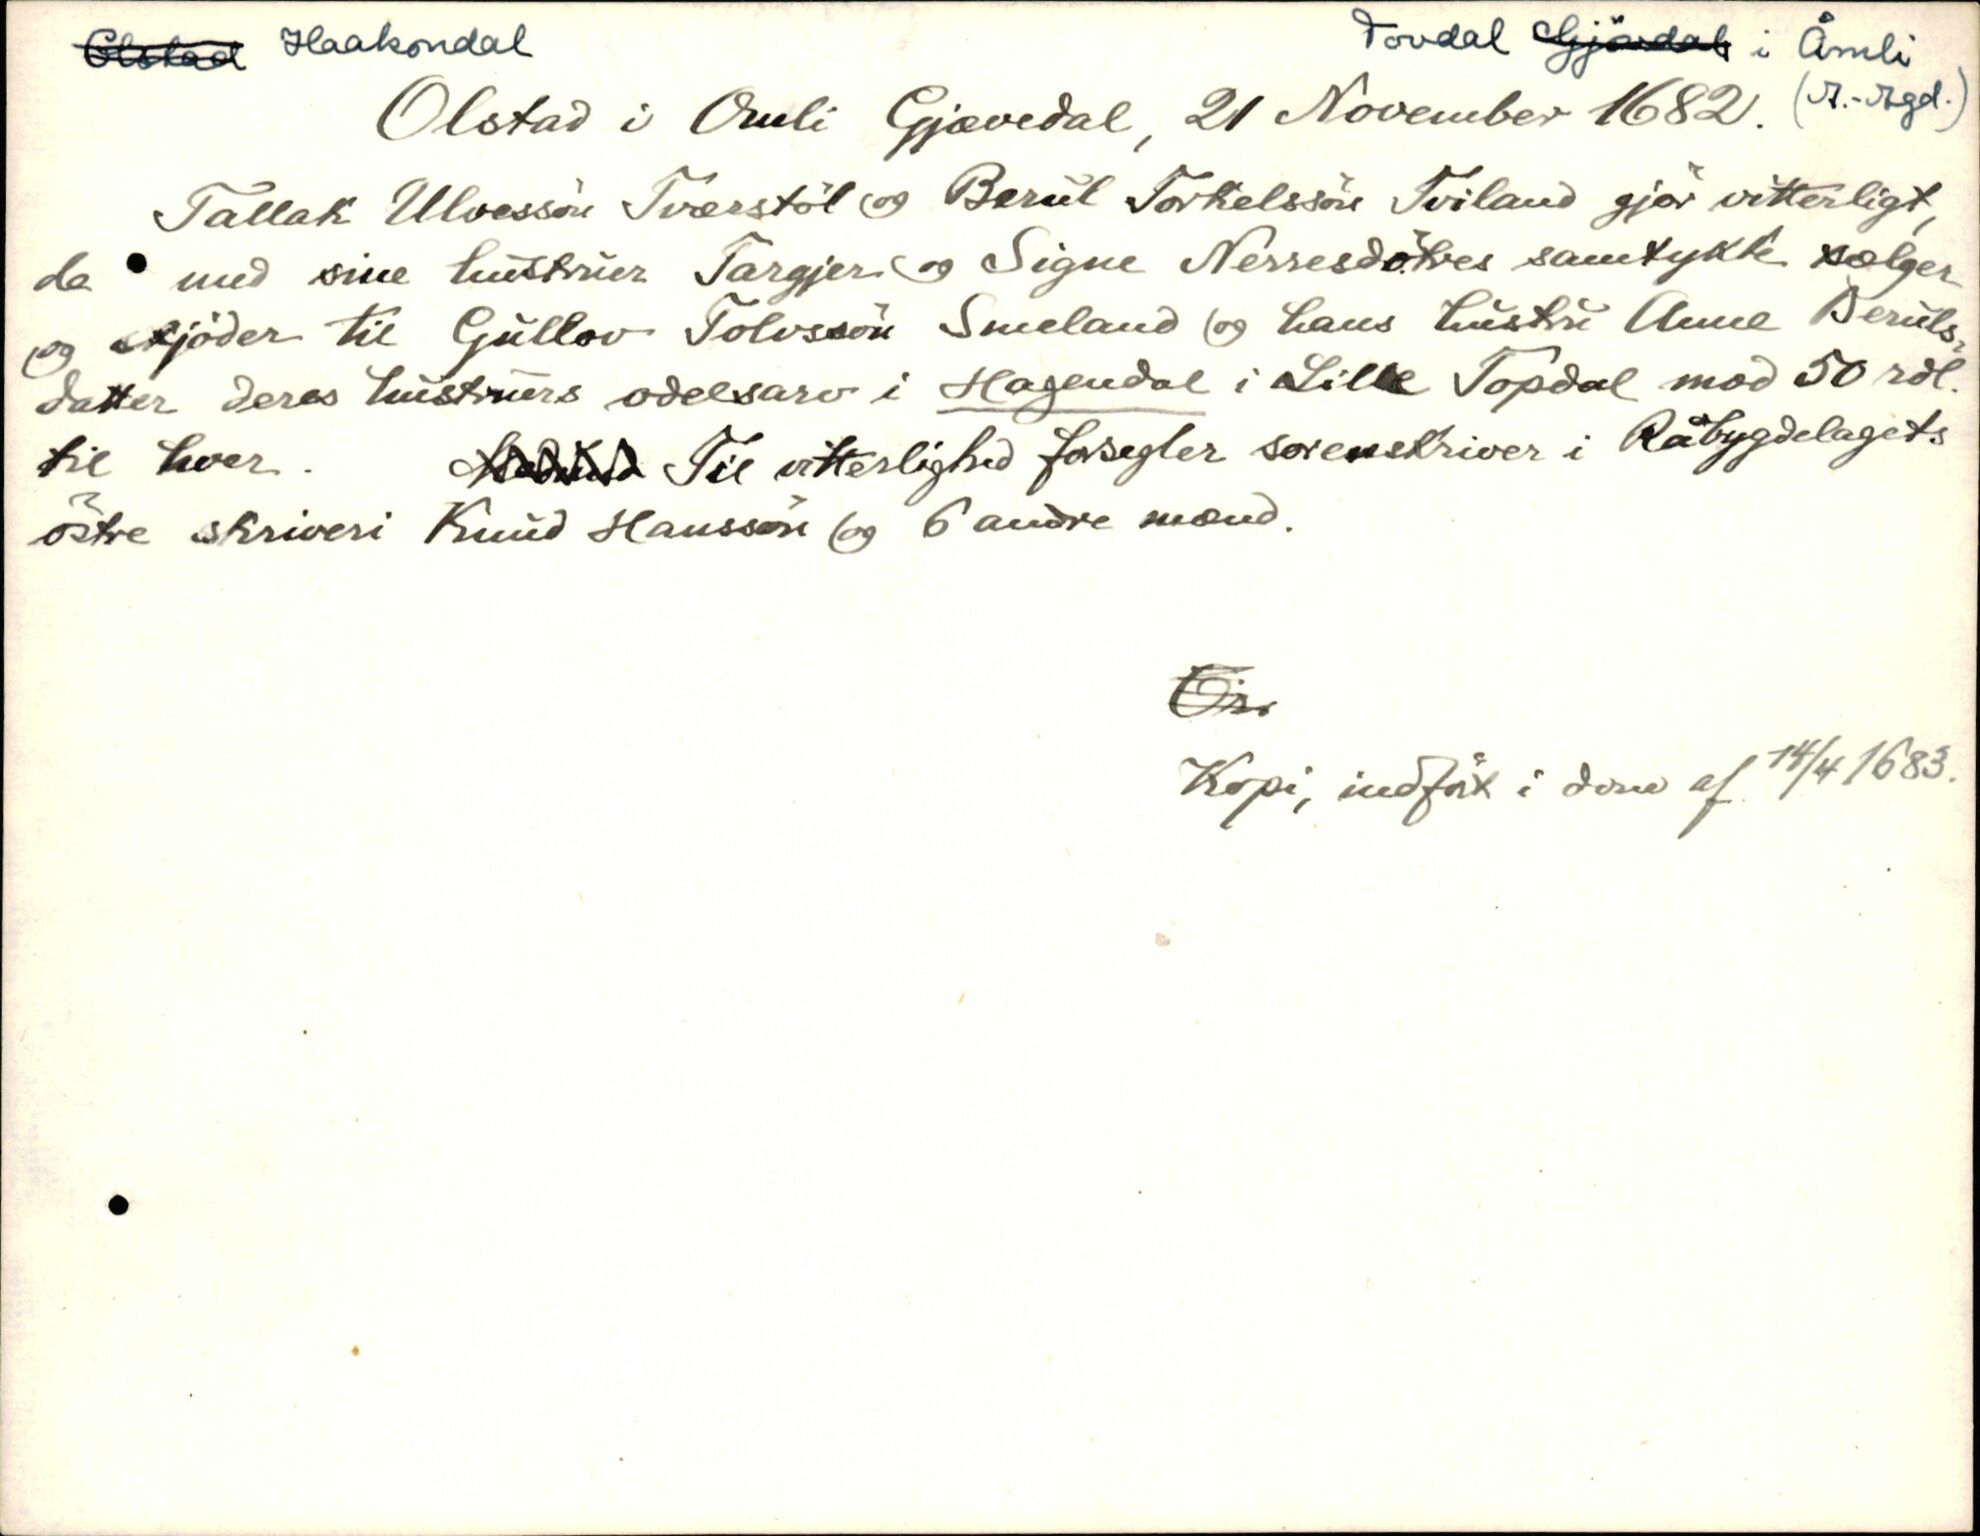 Olstad Haakondal Tovdal Gjövdal i Åmli
(A.-Agd.)
Olstad i Omli Gjævedal, 21 November 1682.
Tallak Ulvessön Tværstöl og Berul Torkelssön Tviland gjör vitterligt,
de med sine hustruer Targjer og Signe Nerresdötres samtykke sælger
og skjöder til Gullov Tolvssön Smeland og hans hustru Anne Beruls-
datter deres hustruers odelsarv i Hagendal i Lille Topdal mod 50 rdl.
til hver. Til vitterlighed forsegler sorenskriver i Råbygdelagets
östre skriveri Knud Hanssön og 6 andre mænd.
Or.
Kopi, indfört i dom af 14/4 1683.